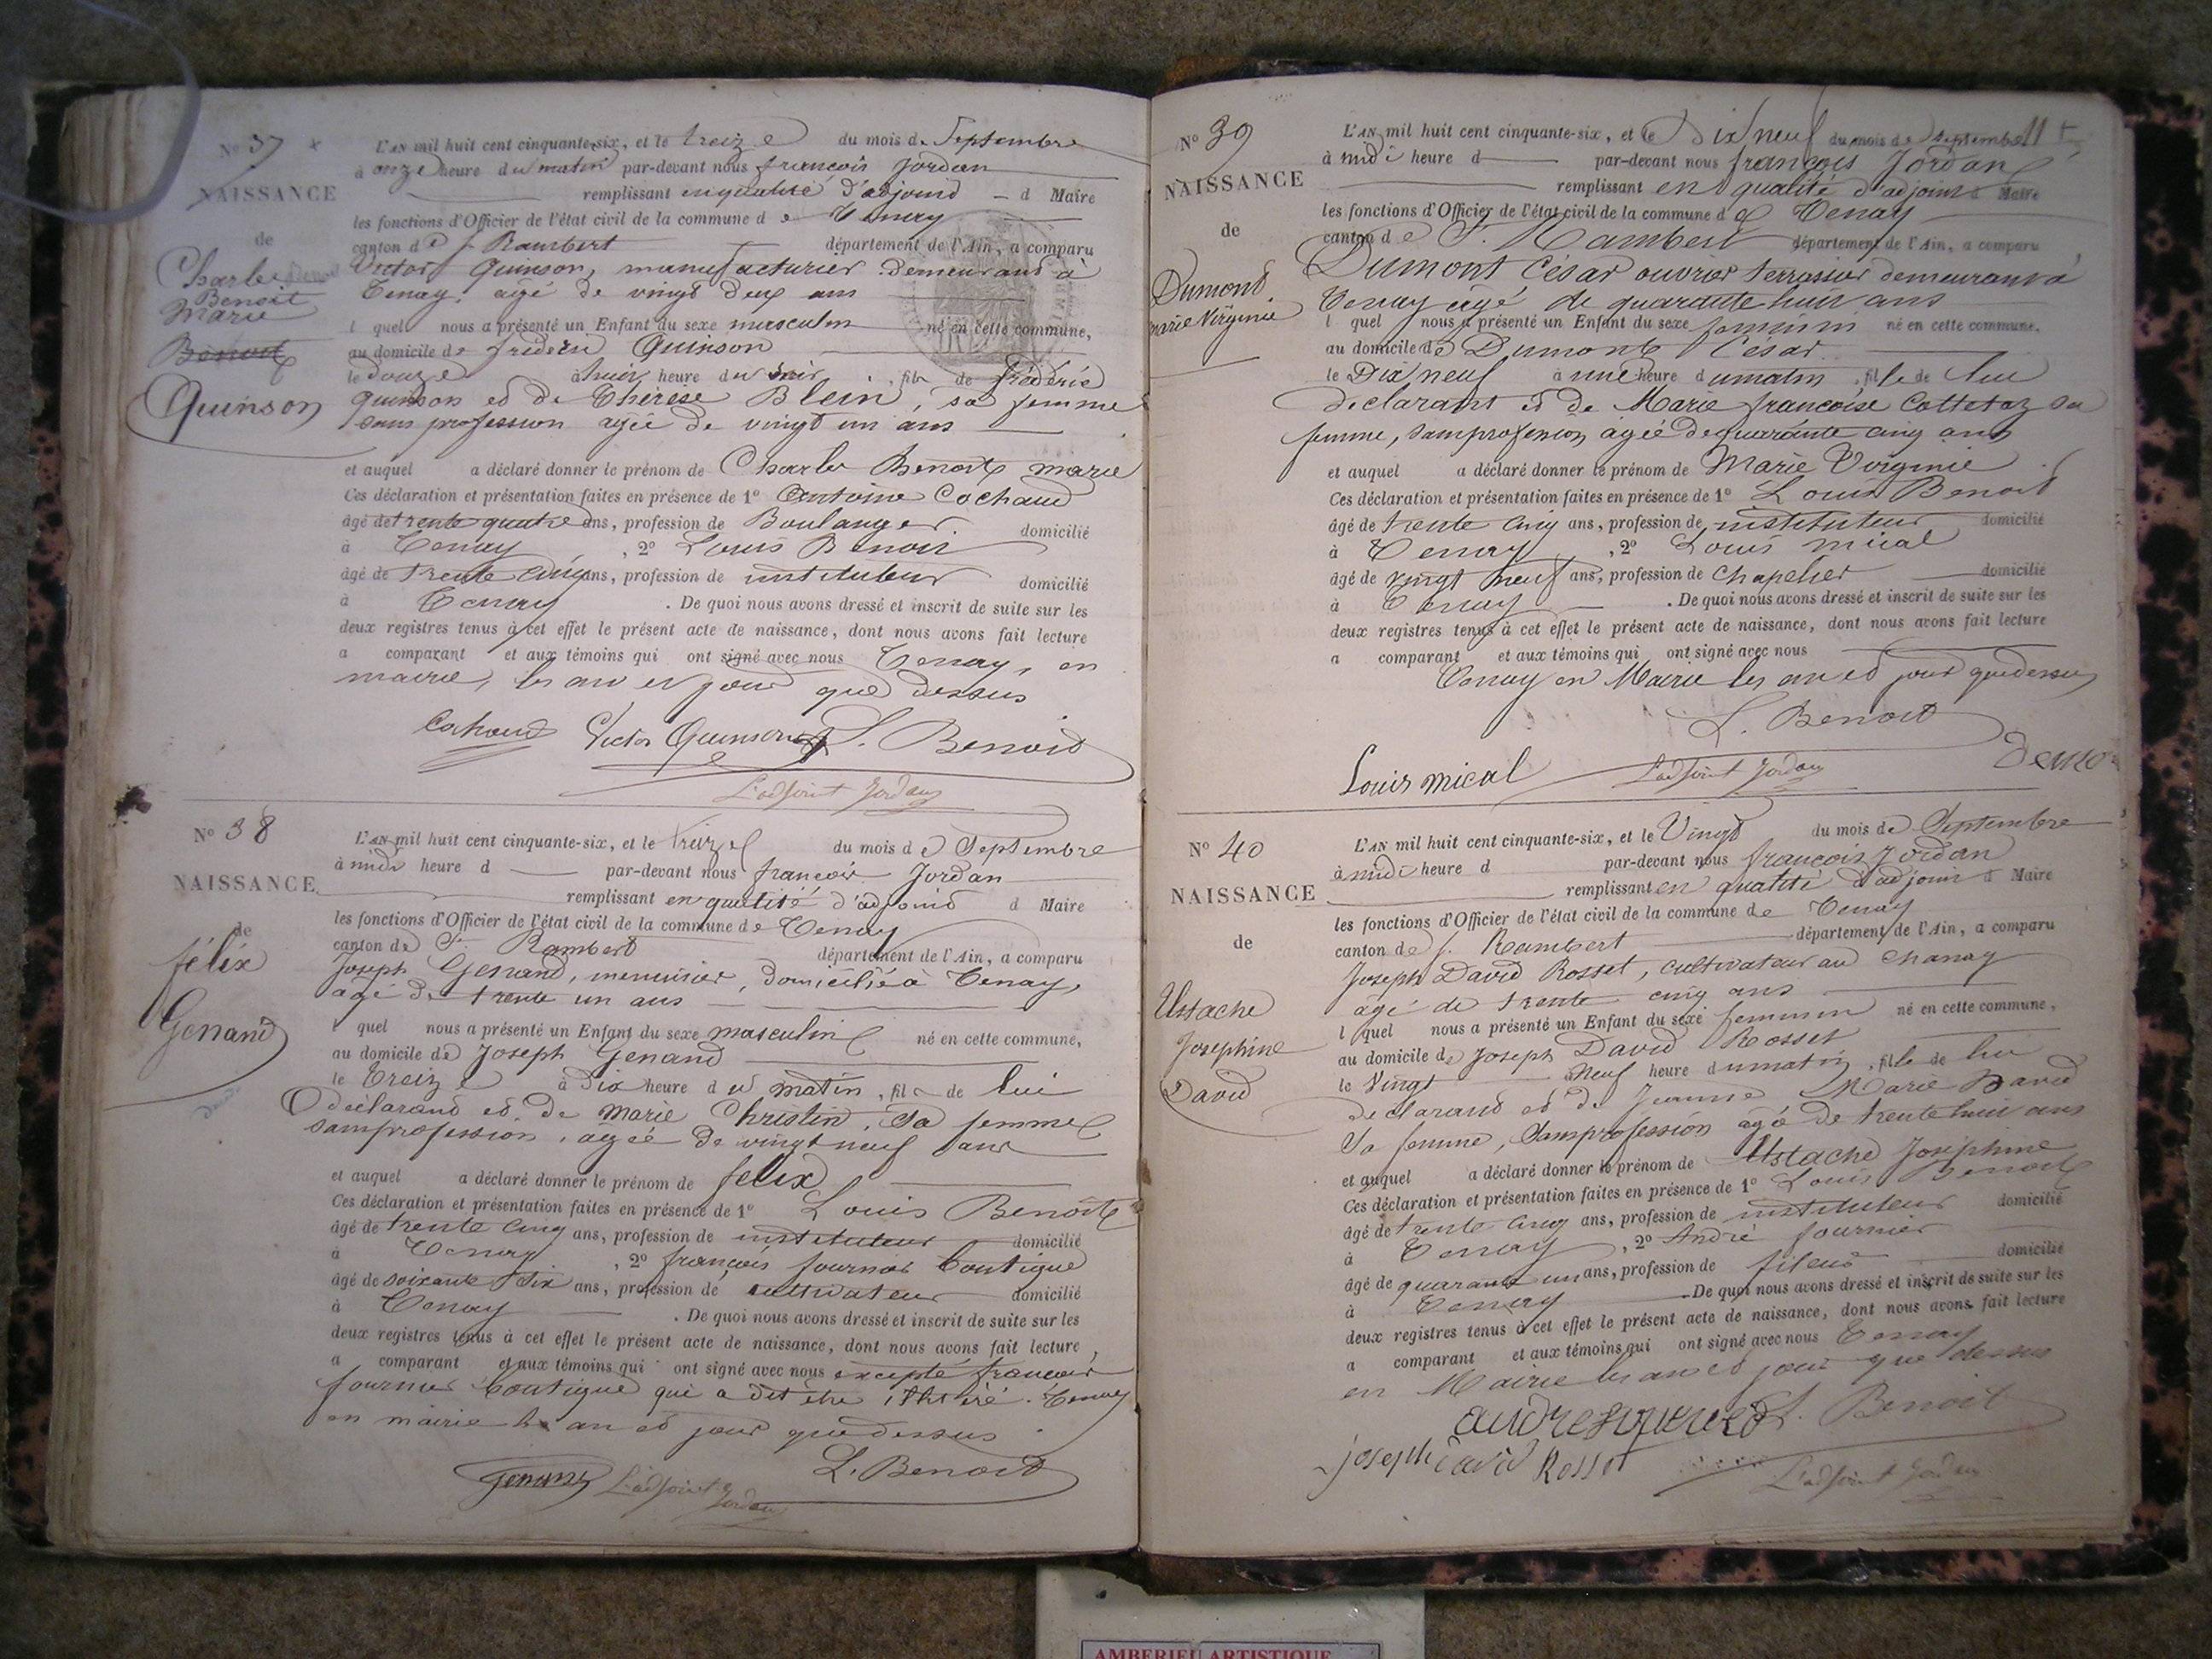 N° 37
NAISSANCE
de
Charles
Benoit
Marie
Benoit
Quinson
L'AN mil huit cent cinquante-six, et le treize du mois de Septembre
à onze heure du matin par-devant nous françois Jordan
remplissant en qualité d'adjoint d Maire
les fonctions d'Officier de l'état civil de la commune d e Tenay
canton d e St Rambert département de l'Ain, a comparu
Victor Quinson, manufacturier demeurant à
Tenay, agé de vingt deux ans
l quel nous a présenté un Enfant du sexe masculin né en cette commune,
au domicile de frédéric Quinson
le douze à huit heure du soir, fils de frédéric
quinson et de Thérèse Blein, sa femme
sans profession agée de vingt un ans
et auquel a déclaré donner le prénom de Charles Benoit marie
Ces déclaration et présentation faites en présence de 1° Antoine Cochaud
âgé de trente quatre ans, profession de Boulanger domicilié
à Tenay, 2° Louis Benoit
âgé de trente cinq ans, profession de instituteur domicilié
à Tenay. De quoi nous avons dressé et inscrit de suite sur les
deux registres tenus à cet effet le présent acte de naissance, dont nous avons fait lecture
a comparant et aux témoins qui ont signé avec nous Tenay, en
mairie, les an et jour que dessus
Cochaud Victor Quinson L. Benoit
L'adjoint Jordan
N° 38
NAISSANCE
de
félix
Genand
L'AN mil huit cent cinquante-six, et le treize du mois d e Septembre
à midi heure d par-devant nous françois Jordan
remplissant en qualité d'adjoint d Maire
les fonctions d'Officier de l'état civil de la commune de Tenay
canton de St. Rambert département de l'Ain, a comparu
Joseph Genand, menuisier, domicilié à Tenay,
agé de trente un ans
l quel nous a présenté un Enfant du sexe masculin né en cette commune,
au domicile de Joseph Genand
le treize à dix heure d u matin, fils de lui
déclarant et de marie Christin, sa femme
sans profession, agée de vingt neuf ans
et auquel a déclaré donner le prénom de felix
Ces déclaration et présentation faites en présence de 1° Louis Benoit
âgé de trente cinq ans, profession de instituteur domicilié
à Tenay, 2° françois fournier boutique
âgé de soixante dix ans, profession de cultivateur domicilié
à Tenay. De quoi nous avons dressé et inscrit de suite sur les
deux registres tenus à cet effet le présent acte de naissance, dont nous avons fait lecture,
a comparant et aux témoins qui ont signé avec nous excepté françois
fournier boutique qui a dit être illétiré. Tenay
en mairie les an et jour que dessus
Genand L'adjoint Jordan L. Benoit
N° 39
NAISSANCE
de
Dumont
marie Virginie
L'AN mil huit cent cinquante-six, et le Dix neuf du mois de Septembre
à midi heure d par-devant nous françois Jordan
remplissant en qualité d'adjoint d Maire
les fonctions d'Officier de l'état civil de la commune d e Tenay
canton d e St. Rambert département de l'Ain, a comparu
Dumont César ouvrier terrassier demeurant à
Tenay agé de quarante huit ans
l quel nous a présenté un Enfant du sexe feminin né en cette commune.
au domicile de Dumont César
le Dix neuf à une heure du matin, fille de lui
declarant et de Marie françoise Cottetaz sa
femme, sans profession agée de quarante cinq ans
et auquel a déclaré donner le prénom de Marie Virginie
Ces déclaration et présentation faites en présence de 1° Louis Benoit
âgé de trente cinq ans, profession de instituteur domicilié
à Tenay, 2° Louis mical
âgé de vingt neuf ans, profession de chapelier domicilié
à Tenay. De quoi nous avons dressé et inscrit de suite sur les
deux registres tenus à cet effet le présent acte de naissance, dont nous avons fait lecture
a comparant et aux témoins qui ont signé avec nous
Tenay en Mairie les an et jour que dessus
L. Benoit
Louis mical L'adjoint Jordan
N° 40
NAISSANCE
de
Ustache
Josephine
David
L'AN mil huit cent cinquante-six, et le Vingt du mois de Septembre
à midi heure d par-devant nous françois Jordan
remplissant en qualité d'adjoint d Maire
les fonctions d'Officier de l'état civil de la commune de Tenay
canton de St. Rambert département de l'Ain, a comparu
Joseph David Rosset, cultivateur au chanay
agé de trente cinq ans
l quel nous a présenté un Enfant du sexe feminin né en cette commune,
au domicile de Joseph David Rosset
le Vingt à Neuf heure du matin, fille de lui
déclarant et de Jeanne Marie David
sa femme, sans profession agé de trente huit ans
et auquel a déclaré donner le prénom de Ustache Joséphine
Ces déclaration et présentation faites en présence de 1° Louis Benoit
âgé de trente cinq ans, profession de instituteur domicilié
à Tenay, 2° André fournier
âgé de quarante un ans, profession de fileur domicilié
à Tenay. De quoi nous avons dressé et inscrit de suite sur les
deux registres tenus à cet effet le présent acte de naissance, dont nous avons fait lecture
a comparant et aux témoins qui ont signé avec nous Tenay
en Mairie les an et jour que dessus
L. Benoit
joseph david Rosset
L'adjoint Jordan
AMBERIEU ARTISTIQUE